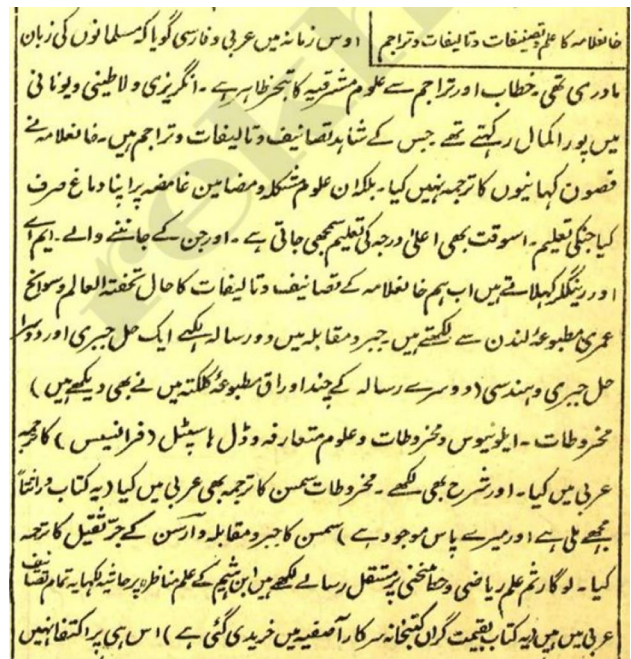 خانعلامہ کا علم و تصنیفات و تالیفات و تراجم
اوس زمانہ میں عربی و فارسی گویا کہ مسلمانوں کی زبان
مادری تھی۔ خطاب اور تراجم سے علوم مشرقیہ کا تبحر ظاہر ہے۔ انگریزی و لاطینی و یونانی
میں پورا کمال رکہتے تھے۔ جس کے شاہد تصانیف و تالیفات و تراجم ہیں۔ خانعلامہ نے
قصون کہانیوں کا ترجمہ نہیں کیا۔ بلکہ ان علوم مشکلہ و مضامین غامضہ پر اپنا دماغ صرف
کیا جنکی تعلیم۔ اسوقت بھی اعلیٰ درجہ کی تعلیم سمجھی جاتی ہے۔ اور جن کے جاننے والے۔ ایم اے
اور رینگلر کہلاتے ہیں اب ہم خانعلامہ کے تصانیف و تالیفات کا حال تحفتہ العالم و سوانح
عمری مطبوعۂ لندن سے لکھتے ہیں۔ جبر و مقابلہ میں دو رسالہ لکہے ایک حل جبری اور دوسرا
حل جبری و ہندسی (دوسرے رسالہ کے چند اوراق مطبوعۂ کلکتہ میں نے بھی دیکھے ہیں)
مخروطات۔ ایلونیوس و مخروطات و علوم متعارفہ و ڈل ہاسپٹل (فرانسیس) کا ترجمہ
عربی میں کیا۔ اور شرح بھی لکھے۔ مخروطات سمسن کا ترجمہ بھی عربی میں کیا (یہ کتاب وراثتاً
مجھے ملی ہے اور میرے پاس موجود ہے) سمسن کا جبر و مقابلہ و آرسن کے جر ثقیل کا ترجمہ
کیا۔ لوگارثم علم ریاضی و خط منحنی پر مستقل رسالے لکھے ہیں ابن ہثیم کے علم مناظرہ پر حاشیہ لکہا یہ تمام تصانیف
عربی میں ہیں (یہ کتاب بقیمت گراں کتبخانہ سرکار آصفیہ میں خریدی گئی ہے) اس ہی پر اکتفا نہیں